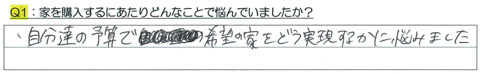 Q1：家を購入するにあたりどんなことで悩んでいましたか？
・自分達の予算で希望の家をどう実現するかに悩みました